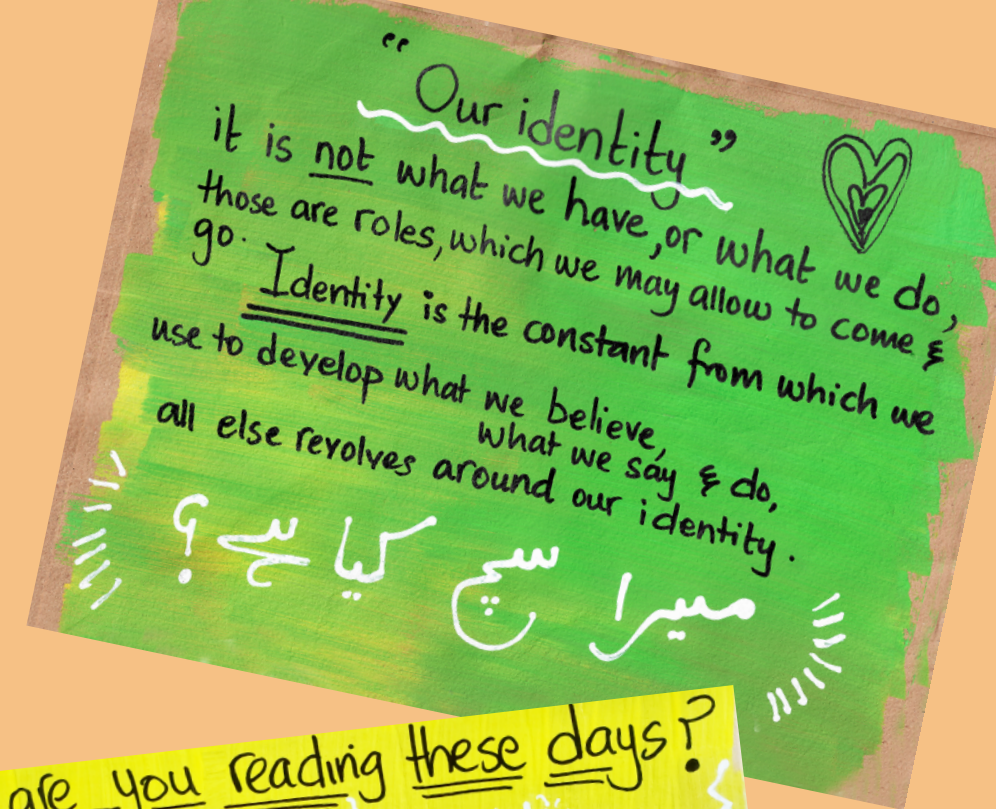 “Our identity”
it is not what we have, or what we do,
those are roles, which we may allow to come &
go. Identity is the constant from which we
use to develop what we believe,
what we say & do,
all else revolves around our identity.
میرا سچ کیا ہے؟
are you reading these days?